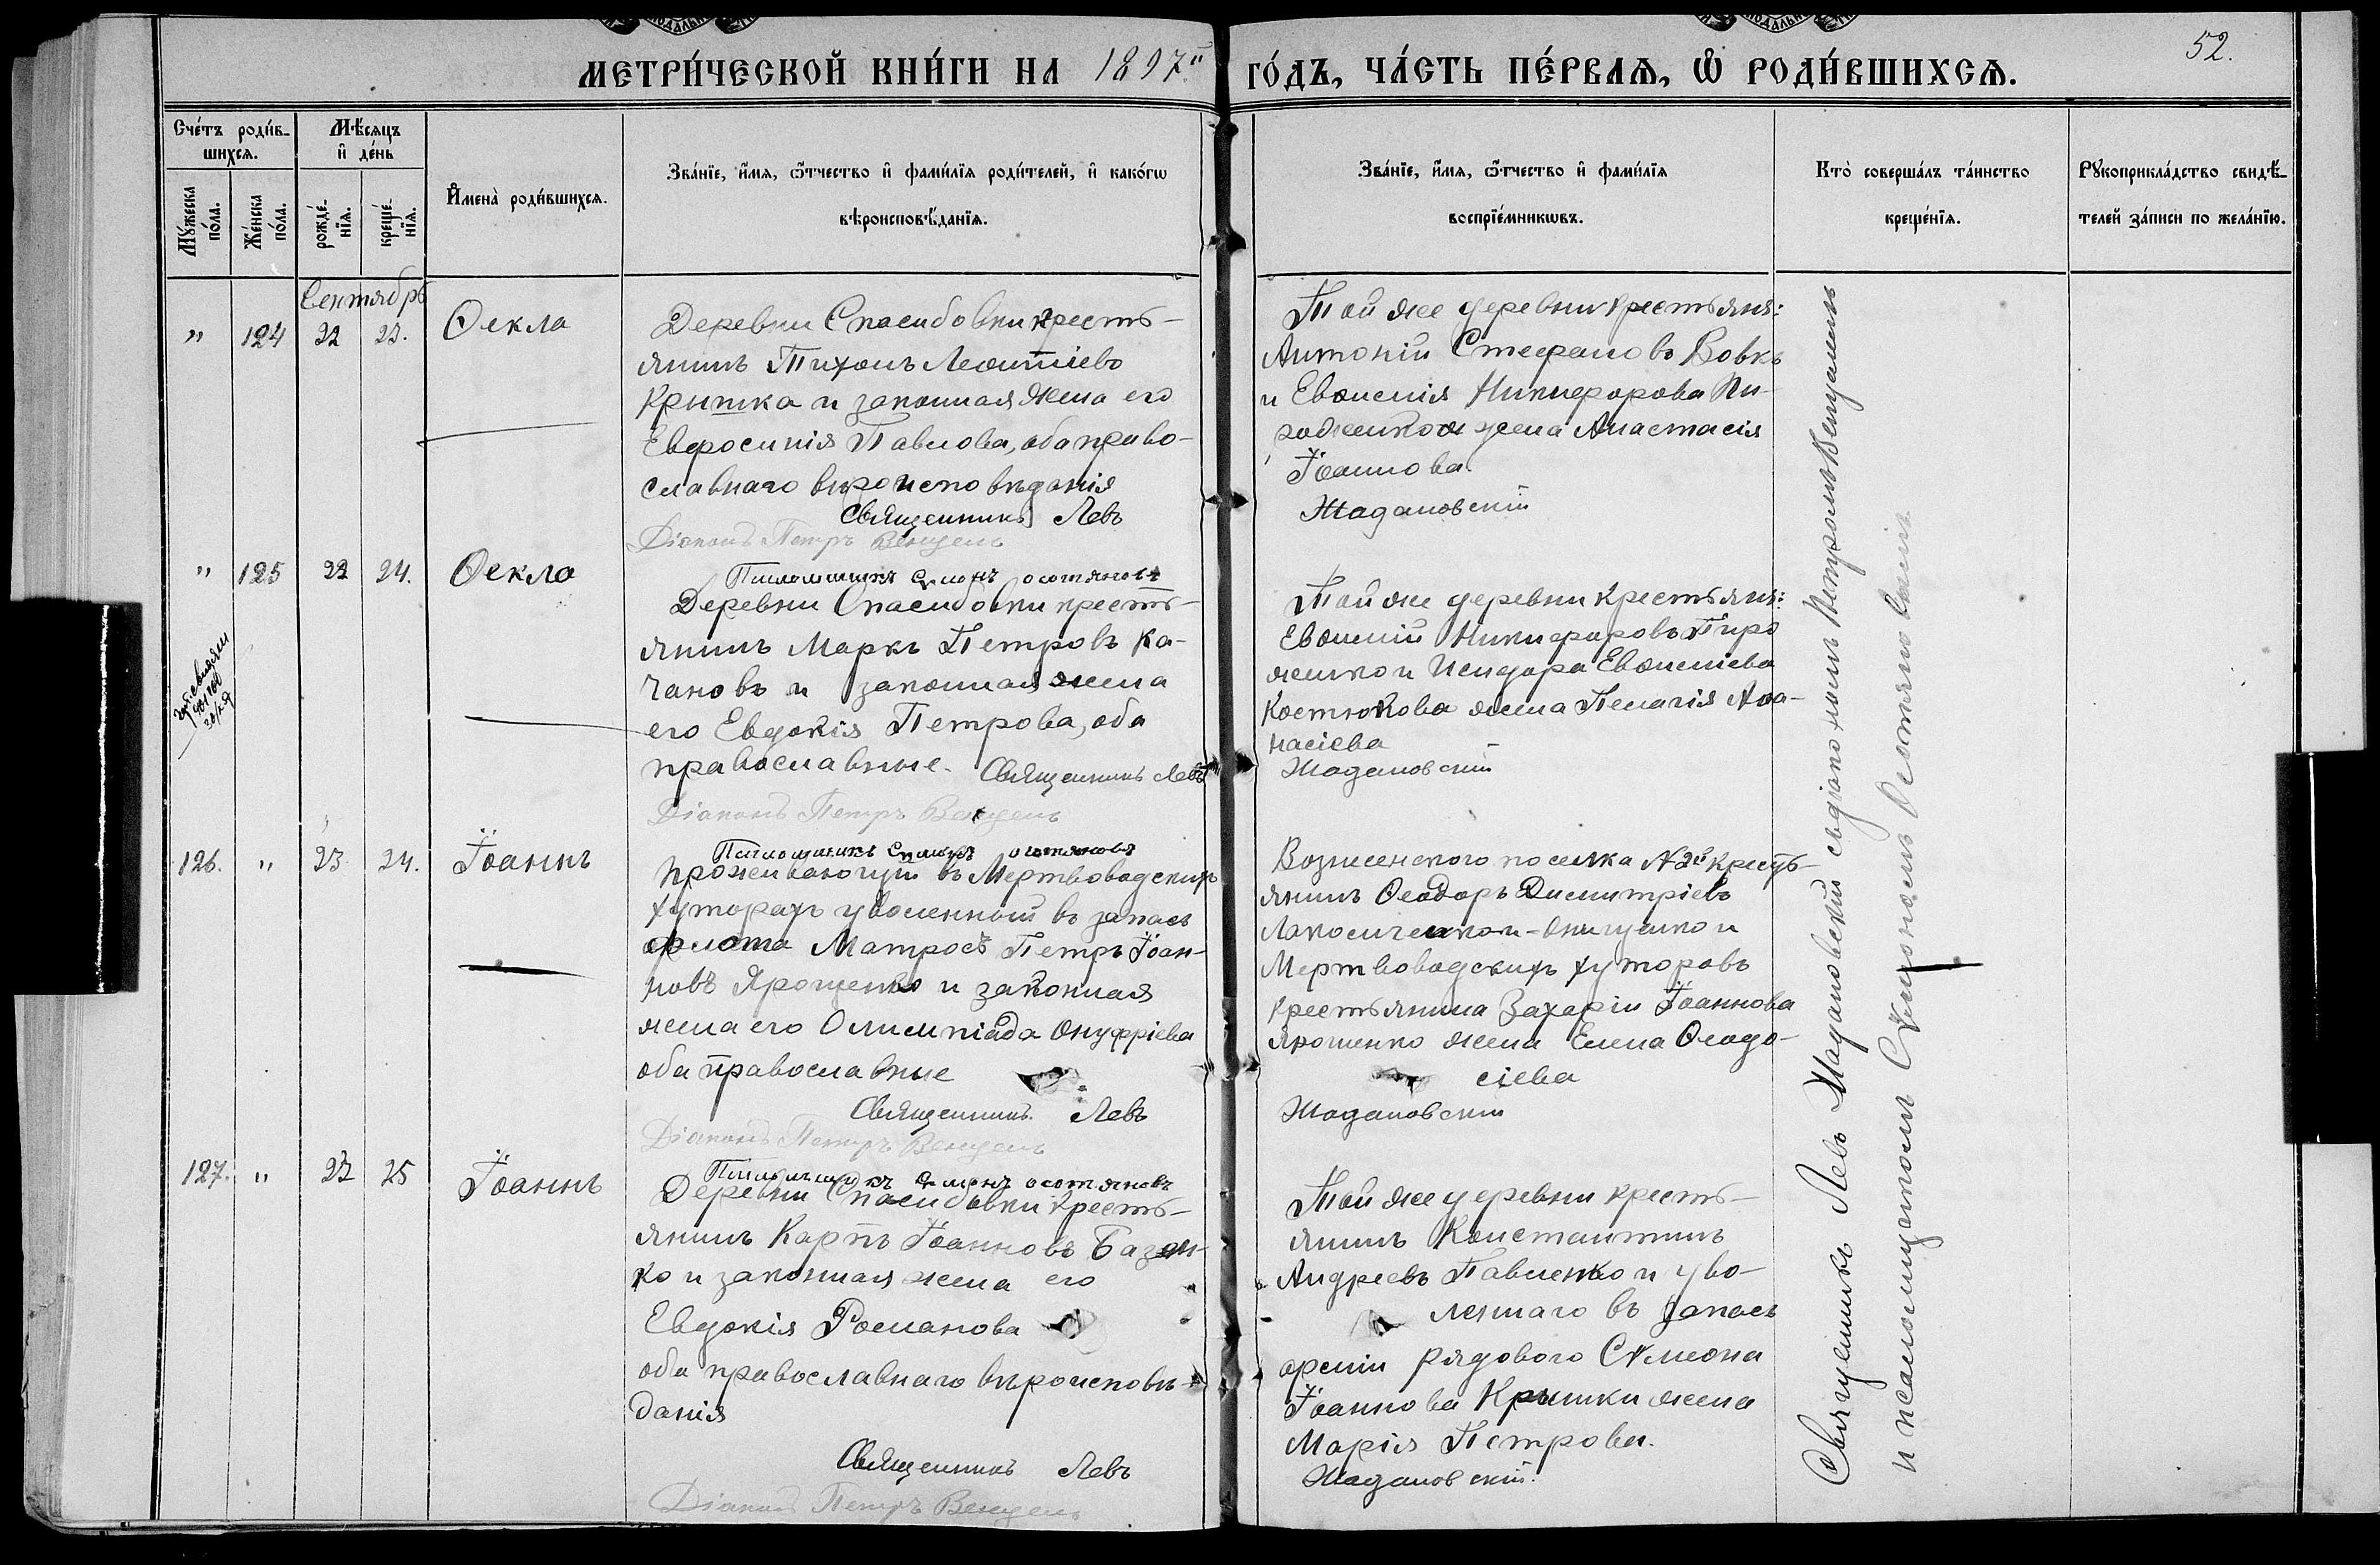 МЕТРИ́ЧЕСКОЙ КНИ́ГИ НА 1897й ГО́ДЪ, ЧА́СТЬ ПЕ́РВАѦ, Ѡ РОДИ́ВШИХСѦ.
52.
Сче́тъ роди́в-
шихсѧ.
Мꙋ́жеска по́ла.
Же́нска по́ла.
Мѣ́сѧцъ
и де́нь
рожде́-
нїѧ.
креще́-
нїѧ.
Имена̀ роди́вшихсѧ.
Зва́нїе, и́мѧ, ѻ́тчество и фами́лїѧ роди́телей, и како́гѡ
вѣроисповѣ́данїѧ.
Зва́нїе, и́мѧ, ѻ́тчество и фами́лїѧ
воспрїе́мникѡвъ.
Кто̀ соверша́лъ та́инство
креще́нїѧ.
Рꙋкоприкла́дство свидѣ́-
телей за́писи по жела́нїю.
Сентябрь
" 124 22 23. Ѳекла
Деревни Спасибовки кресть-
янинъ Тихонъ Леонтіевъ
Крышка и законная жена его
Евфросинія Павлова, оба право-
славнаго вѣроисповѣданія
Священникъ Левъ
Діаконъ Петръ Венцель
Той же деревни крестьяня:
Антоній Стефановъ Вовкъ
и Евѳимія Никифорова Пи-
роженко жена Анастасія
Іоаннова
Жадановскій
" 125 22 24. Ѳекла
Псаломщикъ Симонъ Осотяновъ
Деревни Спасибовки кресть-
янинъ Маркъ Петровъ Ка-
чановъ и законная жена
его Евдокія Петрова, оба
православные. Священникъ Левъ
Діаконъ Петръ Венцель
Той же деревни крестьяня:
Евѳимій Никифоровъ Пиро
женко и Исидора Евѳиміева
Костюкова жена Пелагія Аѳа-
насіева
Жадановскій
126. " 23 24. Іоаннъ
Псаломщикъ Симонъ Осотяновъ
Проживающій въ Мертвоводскихъ
хуторахъ уволенный въ запасъ
флота Матросъ Петръ Іоан-
новъ Ярошенко и законная
жена его Олимпіада Онуфріева
оба православные
Священникъ Левъ
Діаконъ Петръ Венцель
Вознесенского поселка N 2й кресть-
янинъ Ѳеодоръ Димитріевъ
Мертвоводскихъ хуторовъ
крестьянина Захаріи Іоаннова
Ярошенко жена Елена Ѳеодо-
сіева
Жадановскій
127. " 23 25 Іоаннъ
Псаломщикъ Симонъ Осотяновъ
Деревни Спасибовки кресть-
янинъ Карпъ Іоанновъ Базен-
ко и законная жена его
Евдокія Романова
оба православнаго вѣроисповѣ-
данія
Священникъ Левъ
Діаконъ Петръ Венцель
Той же деревни кресть-
янинъ Константинъ
Андреевъ Павленко и уво-
леннаго въ запасъ
арміи рядового Симеона
Іоаннова Крышки жена
Марія Петрова.
Жадановскій.
Священникъ Левъ Жадановскій съ діакономъ Петромъ Венцелемъ
и псаломщикомъ Симономъ Осотяновымъ